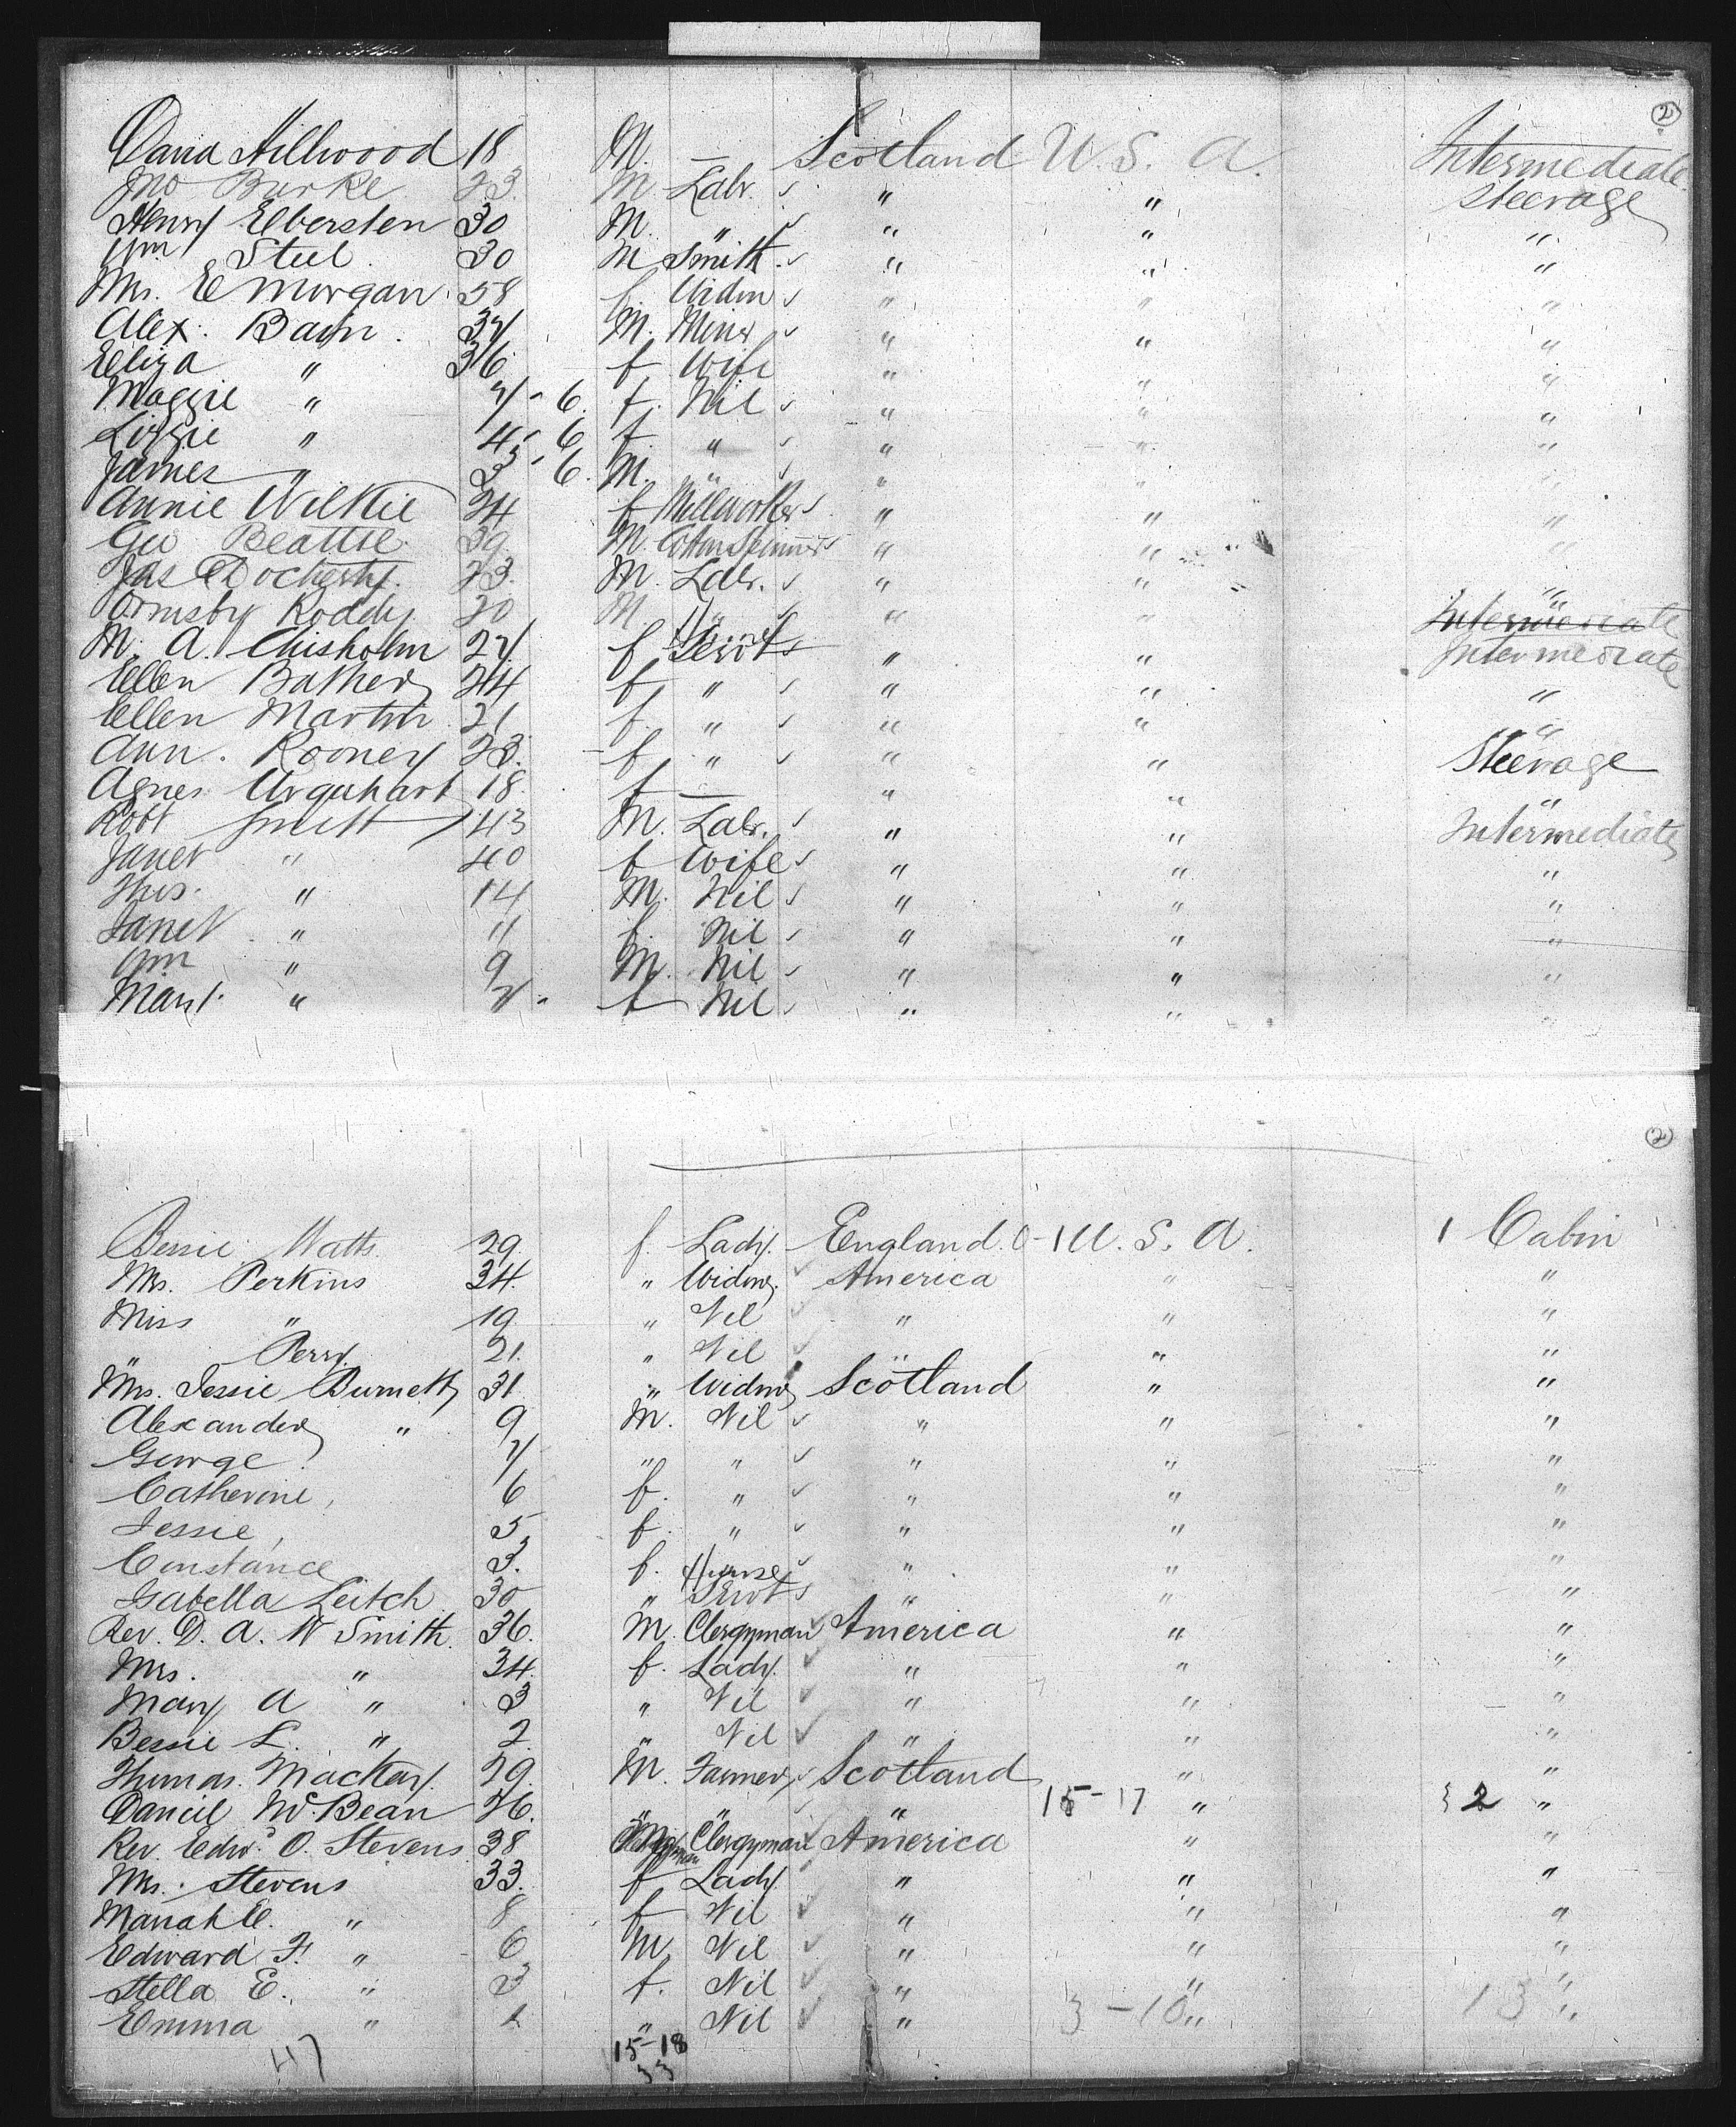 2
David Hillwood 18 M. — Scotland U. S. A. Intermediate
Jno Burke 23. M Labr. " " Steerage
Henry Elbersten 30 M. " " " "
Wm Steel. 30 M Smith. " " "
Mrs. E Morgan 58 f. Widow " " "
Alex. Bain. 37 M. Miner " " "
Eliza " 36. f Wife " " "
Maggie " 7 - 6. f. Nil " " "
Lizzie " 4 - 6 f. " " " "
James " 3 - 6. M. " " " "
Annie Wilkie 24 f Millworker " " "
Geo Beattie. 39 M. Cotton Spinner " " "
Jas Docherty. 23. M. Labr. " " "
Ormsby Roddy 20 M. " " " Intermediate
M. A. Chisholm 27 f Servt " " Intermediate
Ellen Bather 24 f. " " " "
Ellen Martin 21 f. " " " "
Ann. Rooney 23. f. " " " Steerage
Agnes Urquhart 18. f — " " "
Robt Smith 43 M. Labr. " " Intermediate
Janet " 40 f Wife " " "
Thos. " 14 M. Nil " " "
Janet " 11 f. Nil " " "
Wm " 9 M. Nil " " "
Mary. " 7 - f Nil " " "
2
Bessie Watts. 29. f. Lady. England. 0-1 U. S. A. 1 Cabin
Mrs. Perkins 34. " Widow. America " "
Miss " 19 " Nil " " "
" Perry. 21. " Nil " " "
Mrs. Jessie Burnett 31 " Widow Scotland " "
Alexander " 9 M. Nil " " "
George. 7 " " " " "
Catherine, 6 f. " " " "
Jessie, 5 f. " " " "
Constance 3. f. " " " "
Isabella Leitch 30 " Nurse Servt " " "
Rev. D. A. W Smith. 36. M. Clergyman America " "
Mrs. " 34. f. Lady. " " "
Mary A " 3 " Nil " " "
Bessie L. " 2. " Nil " " "
Thomas. Mackay. 29. M. Farmer, Scotland " "
Daniel McBean 26. " " " 15-17 " 2 "
Rev. Edwd. O. Stevens 38 M Clergyman America " "
Mrs. Stevens 33. f Lady " " "
Mariah E. " 8 f Nil " " "
Edward F. " 6 M, Nil " " "
Stella E. " 3 f. Nil " " "
Emma " 1 " Nil " 3-10 " 13 "
47 15-18
33